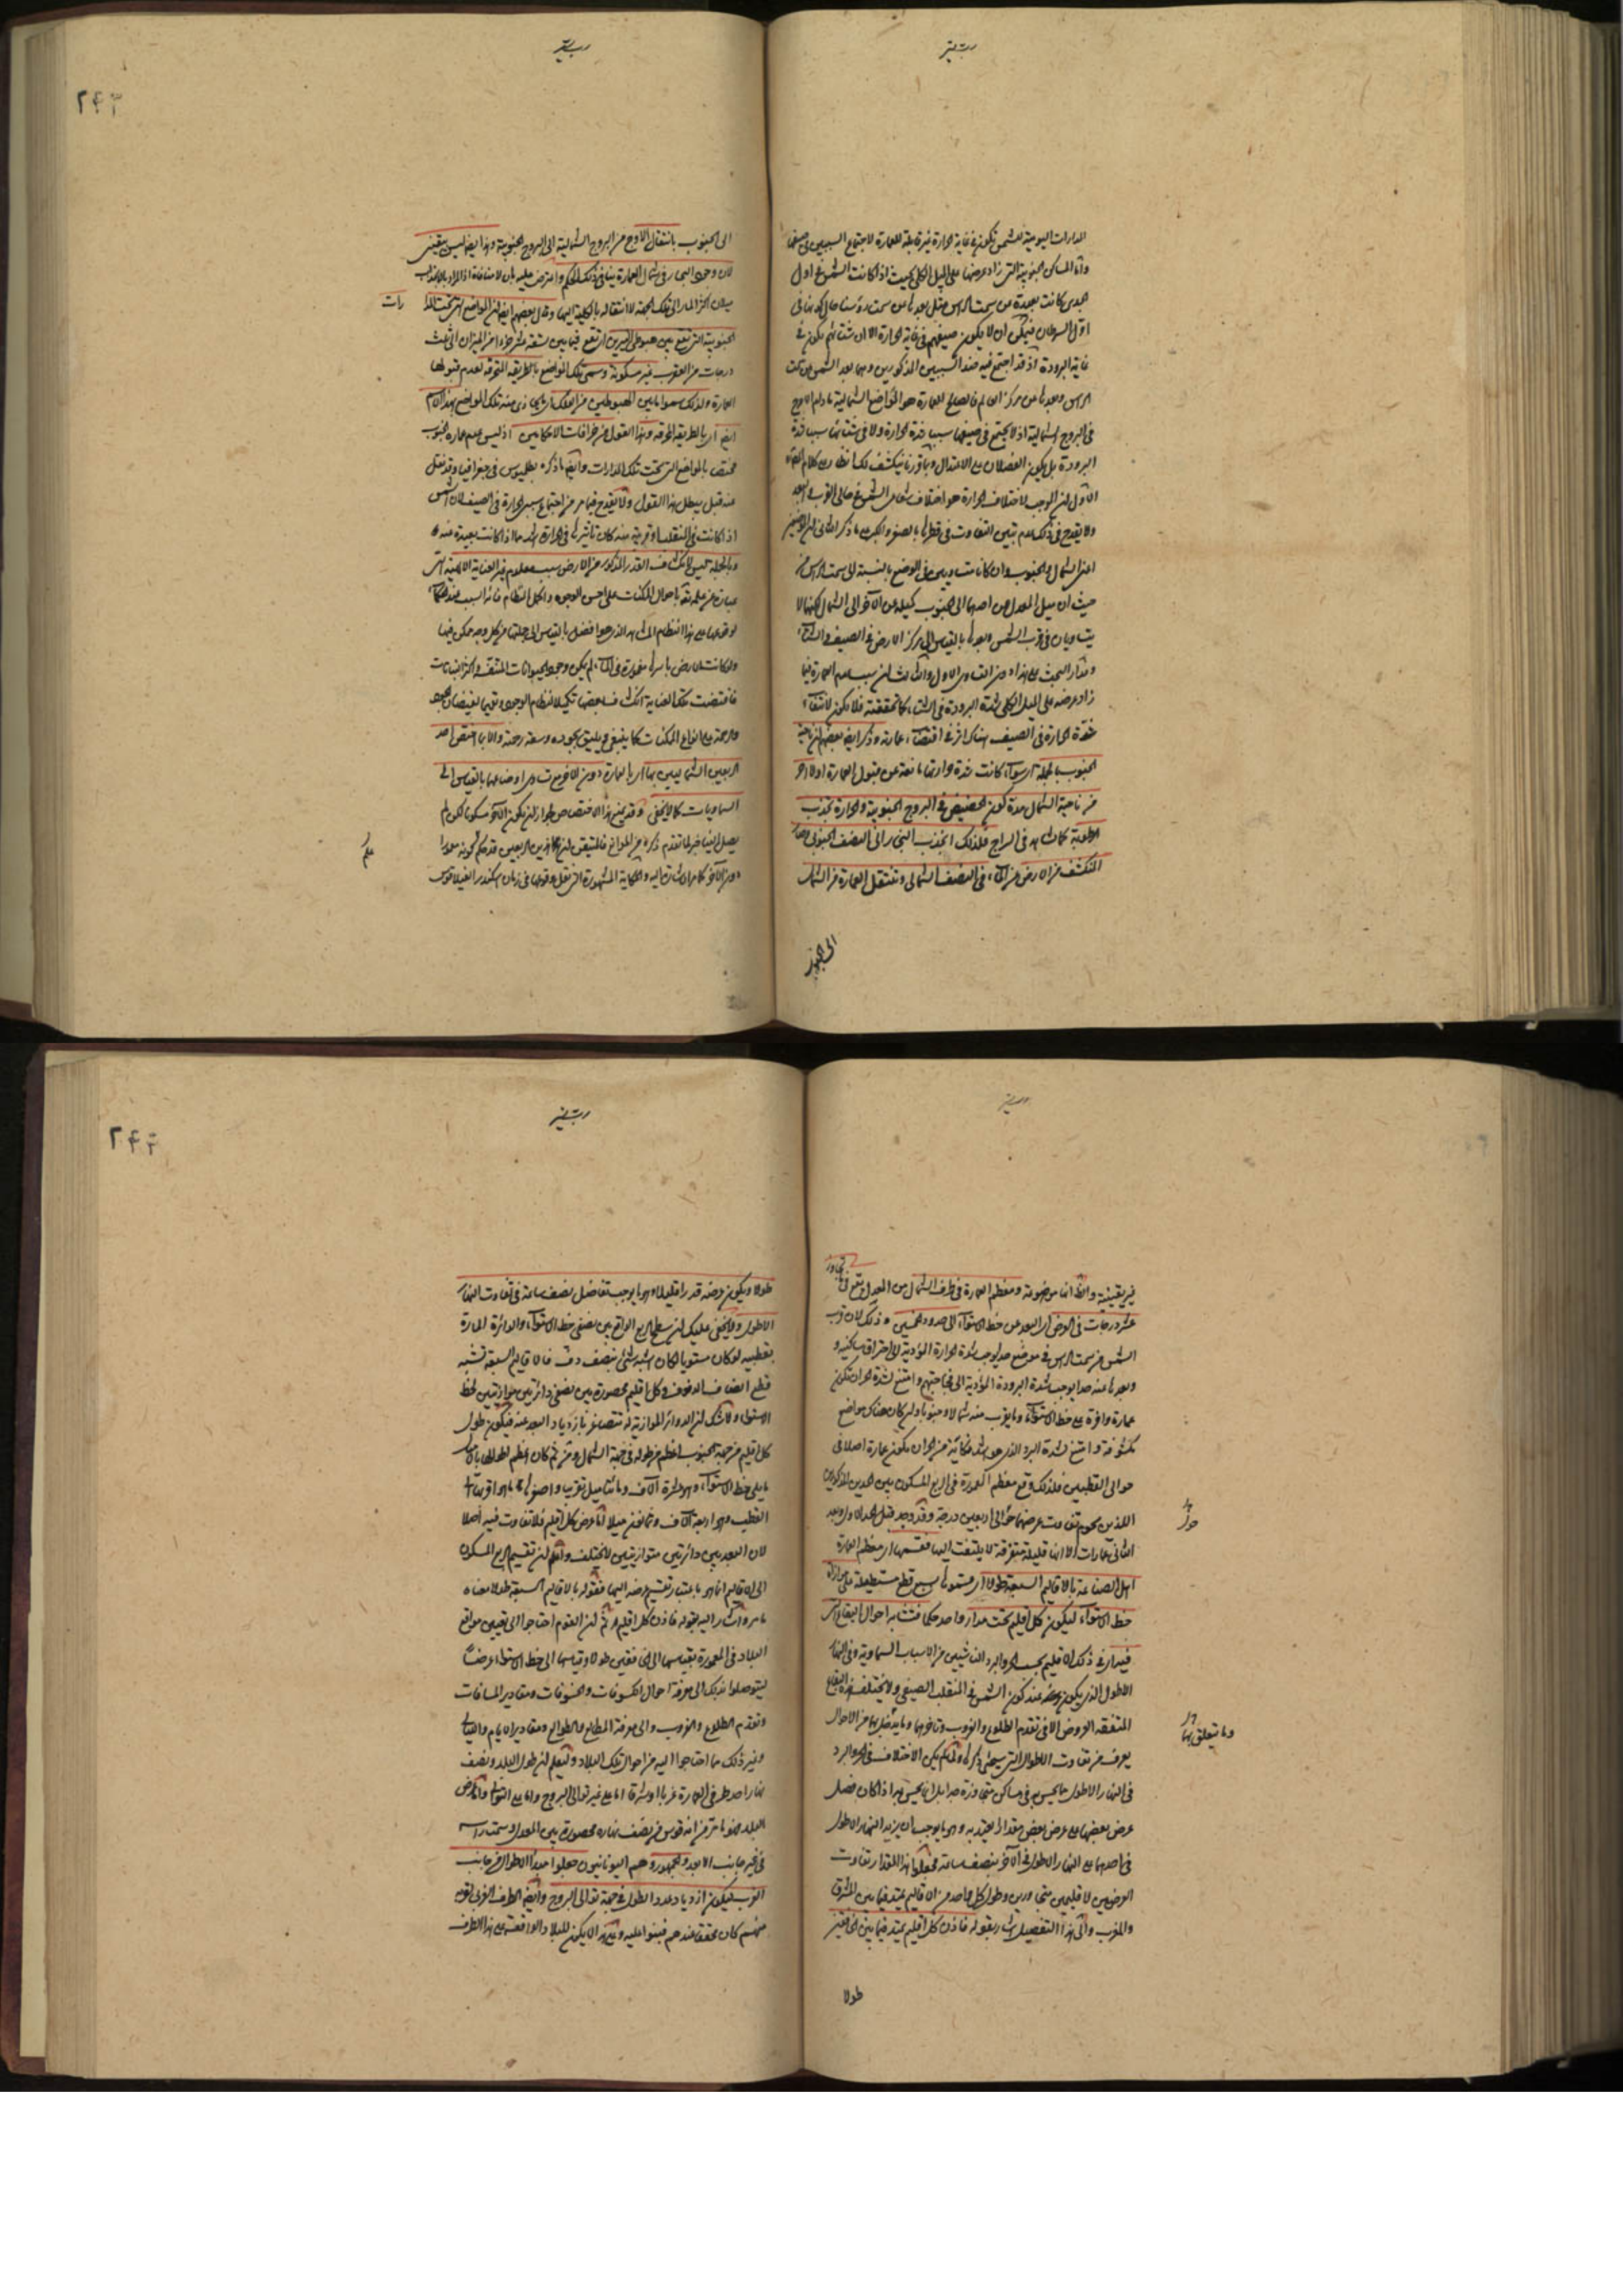 المدارات اليومية للشمس تكون في غاية الحرارة غير قابلة للعمارة لاجتماع السببين في صيفها
وأما المساكن الجنوبية التي زاد عرضها على الميل الكلي بحيث اذا كانت الشمس في اول
الجدي كانت بعيدة عن سمت الراس مثل بعدها عن سمت رؤسنا حال كونها في
اول السرطان فيمكن ان لا يكون صيفهم في غاية الحرارة الا ان شتائهم يكون في
غاية البرودة اذ قد اجتمع فيه ضد السببين المذكورين وهما بعد الشمس عن سمت
الراس وبعدها عن مركز العالم فالصالح للعمارة هو المواضع الشمالية ما دام الاوج
في البروج الشمالية اذ لا يجتمع في صيفها سببا شدة الحرارة ولا في شتائها سببا شدة
البرودة بل يكون الفصلان على الاعتدال وبما قررنا ينكشف لك
الاول ان الموجب لاختلاف الحرارة هو اختلاف شعاع الشمس في حالي القرب والبعد
ولا يقدح في ذلك عدم تبين التفاوت في قطرها بالصغر والكبر على ما ذكر الثاني ان الموضعين
اعني الشمال والجنوب وان كانا متساويين في الوضع بالنسبة الى سمت الراس من
حيث ان ميل المعدل عن احدهما الى الجنوب كميله عن الآخر الى الشمال لكنهما لا
يتساويان في قرب الشمس وبعدها بالقياس الى مركز الارض في الصيف والشتاء
ومدار البحث على هذا دون التساوي الاول والثالث ان سبب عدم العمارة فيما
زاد عرضه على الميل الكلي شدة البرودة في الشتاء كما تحققته فلا يكون لانتفاء
شدة الحرارة في الصيف هناك اثر في اقتضاء عمارته وذكر ايضا بعضهم ان ناحية
الجنوب بالجملة كانت شدة حرارتها مانعة عن قبول العمارة اولا
من ناحية الشمال مدة كون الحضيض في البروج الجنوبية والحرارة تجذب
الرطوبة كما تشاهد في السراج فلذلك انجذب البخار الى النصف الجنوبي
انكشف من الارض من الماء في النصف الشمالي وتنتقل العمارة من الشمال
الى الجنوب
الى الجنوب بانتقال الاوج من البروج الشمالية الى البروج الجنوبية وهذا ايضا ليس بيقيني
لان وجود البحار في شمال العمارة ينافي ذلك الحكم واعترض عليه بان لا منافاة اذ المراد بالانجذاب
ميلان اكثر الماء الى تلك الجهة لا انتقاله بالكلية اليها وقال بعضهم ايضا ان المواضع التي تحت المدا
رات
الجنوبية التي تقع بين هبوطي النيرين اي تقع فيما بين تسعة عشر جزءا من الميزان الى ثلث
درجات من العقرب غير مسكونة وسمي تلك المواضع بالطريقة المحترقة لعدم قبولها
العمارة ولذلك سموا ما بين الهبوطين من الفلك المحاذي منه تلك المواضع بهذا الاسم
ايضا اي بالطريقة المحرقة وهذا القول من خرافات الاحكاميين اذ ليس عدم عمارة الجنوب
مختص بالمواضع التي تحت تلك المدارات وايضا ما ذكره بطليموس في جغرافيا وقد نقل
عنه قبل يبطل هذا القول ولا يقدح فيما مر من اجتماع سببي الحرارة في الصيف لان الشمس
اذا كانت في المنقلب وقريبة منه كان تأثيرها في الحرارة اشد مما اذا كانت بعيدة عنه
وبالجملة ليس لانكشاف القدر المذكور من الارض سبب معلوم غير العناية الالهية التي
عبارة عن علمه تعالى باحوال الممكنات على احسن الوجوه واكمل النظام فانه السبب عندهم
لوقوعها على هذا النظام المشاهد الذي هو افضل بالقياس الى جملتها من كل وجه ممكن فيها
ولو كانت الارض باسرها مغمورة في الماء لم يكن وجود الحيوانات المتنفسة واكثر النباتات
فاقتضت تلك العناية انكشاف بعضها تكميلا لنظام الوجود وتتميما لفيضان الجود
والرحمة على انواع الممكنات كما ينبغي ويليق بجوده وسعة رحمته والا ما اختص احد
الربعين الشماليين بها اي بالعمارة دون الآخر مع تساوي اوضاعهما بالقياس الى
السماويات كما لا يخفى وقد يمنع هذا الاختصاص لجواز ان يكون الآخر مسكونا لكن لم
يصل الينا خبرهم لما تقدم ذكره من الموانع فالمتيقن ان احد الربعين قد حكم بكونه معمورا
علم
دون الآخر كما مر اشارة اليه والحكاية المشهورة التي نقل وقوعها في زمان اسكندر الفيلاقوس
غير يقينية والظاهر انها موضوعة ومعظم العمارة في طرف الشمال عن المعدل يقع فيما
تجاوز
عشر درجات في العرض اي البعد عن خط الاستواء الى حدود خمسين وذلك لان قرب
الشمس من سمت الراس في موضع حد يوجب شدة الحرارة المؤدية الى احتراق ساكنيه و
وبعدها عنه حدا يوجب شدة البرودة المؤدية الى فجاجتهم وامتنع لشدة الحر ان تكون
عمارة وافرة على خط الاستواء وما يقرب منه شمالا وجنوبا وان كان هناك مواضع
مكشوفة وامتنع لشدة البرد الذي هو اشد نكاية من الحر ان يكون عمارة اصلا في
حوالي القطبين فلذلك وقع معظم المعمورة في الربع المسكون بين الحدين المذكورين
اللذين يحويهما تفاوت عرضهما حوالي اربعين درجة وقد وجد قبل الحد الاول وبعد
الثاني عمارات الا انها قليلة متفرقة لا يلتفت اليها فقسمها اي معظم العمارة
اهل الصناعة بالاقاليم السبعة طولا اي قسموها بسبع قطع مستطيلة على موازاة
خط الاستواء ليكون كل اقليم تحت مدار واحد حكما فتشابه احوال البقاع التي
في ذلك الاقليم بحسب الحر والبرد الناشيين من الاسباب السماوية وفي النهار
الاطول الذي يكون عند كون الشمس في المنقلب الصيفي ولا يختلف هذه البقاع
المتفقة العروض الا في تقدم الطلوع والغروب وتاخرهما وما يتعلق بهما من الاحوال
وما يتعلق بهما
يعرف من تفاوت الاطوال التي سيجئ ذكرها ولما لم يكن الاختلاف في الحر والبرد
في النهار الاطول مما يحس به في مساكن متجاورة جدا بل انما يحس به اذا كان فضل
عرض بعضها على عرض بعض مقدارا يعتد به وهو ما يوجب ان يزيد النهار الاطول
في احدهما على النهار الاطول في الآخر بنصف ساعة جعلوا هذا المقدار تفاوت
العرضين لاقليمين متجاورين وطول كل واحد من الاقاليم يمتد فيما بين المشرق
والمغرب والى هذا التفصيل اشار بقوله فاذن كل اقليم يمتد فيما بين الخافقين
طولا
طولا ويكون عرضه قدرا قليلا وهو ما يوجب تفاضل نصف ساعة في تفاوت النهار
الاطول ولا يخفى عليك ان سطح الربع الواقع بين نصفي خط الاستواء والدائرة المارة
بقطبيه لو كان مستويا لكان اشبه شئ بنصف دف فالاقاليم السبعة تشبه
قطع انصاف الدفوف وكل اقليم محصورة بين نصفي دائرتين موازيتين لخط
الاستواء ولا شك ان الدوائر الموازية له تتصاغر بازدياد البعد عنه فيكون طول
كل اقليم من جهة الجنوب اعظم من طوله في جهة الشمال ومن ثم كان اعظم اطوالها
ما يلي خط الاستواء وهو عشرة آلاف ومائتا ميل تقريبا واصغرها ما هو اقرب الى
القطب وهو اربعة آلاف وثمانون ميلا اما عرض كل اقليم فلا تفاوت فيه اصلا
لان البعد بين دائرتين متوازيتين لا يختلف واعلم ان تقسيم الربع المسكون
الى الاقاليم انما هو باعتبار تقسيم عرضه اليها فقوله بالاقاليم السبعة طولا معناه
ما مر واشار اليه بقوله فاذن كل اقليم ثم ان القوم احتاجوا الى تعيين مواقع
البلاد في المعمورة بقياسها الى الخافقين طولا وقياسها الى خط الاستواء عرضا
ليتوصلوا بذلك الى معرفة احوال الكسوفات والخسوفات ومقادير المسافات
وتقدم الطلوع والغروب والى معرفة المطالع والطوالع ومقادير الايام والليالي
وغير ذلك مما احتاجوا اليه من احوال تلك البلاد وليعلم ان طول البلد ونصف
نهار احد طرفي العمارة غربا او شرقا اما على غير توالي البروج واما على التوالي واما عرض
البلد فهو ما مر من انه قوس من نصف نهاره محصورة بين المعدل وسمت راسه
في غير جانب الابعد والجمهور وهم اليونانيون جعلوا مبدأ الاطوال من جانب
الغرب ليكون ازدياد عدد الطول في جهة توالي البروج وايضا الطرف الغربي لقربه
منهم كان محققا عندهم فبنوا عليه وعلى هذا لا يكون للبلاد الواقعة على هذا الطرف